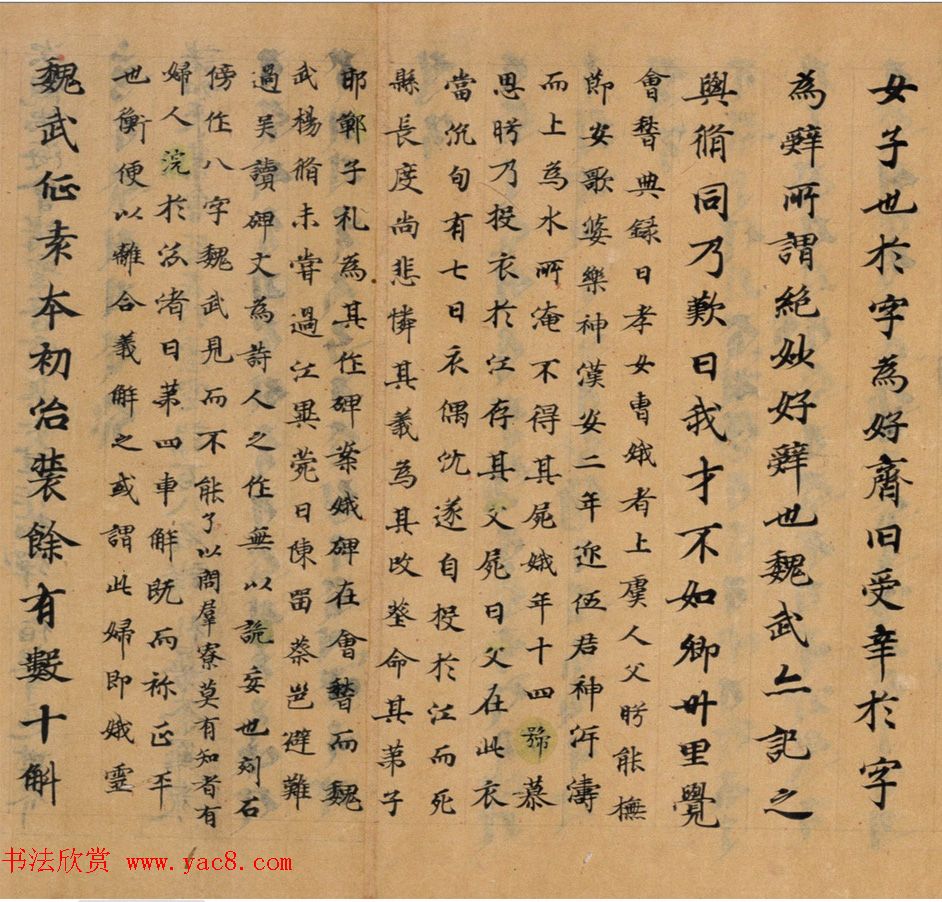 女子也於字為好齊臼受辛於字
為辤所謂絶妙好辤也魏武亦記之
與脩同乃歎曰我才不如卿卅里覺
會嵇典録曰孝女曹娥者上虞人父盱能撫
節安歌婆樂神漢安二年迎伍君神泝濤
而上為水所淹不得其屍娥年十四號慕
思盱乃投衣於江存其父屍曰父在此衣
當沉旬有七日衣偶沉遂自投於江而死
縣長度尚悲憐其義為其改葬命其弟子
邯鄲子礼為其作碑案娥碑在會嵇而魏
武楊脩未甞過江異菀曰陳留蔡邕避難
過吴讀碑文為詩人之作無以詭妄也刻石
傍作八字魏武見而不能了以問羣寮莫有知者有
婦人浣於汾渚曰第四車解既而祢正平
也衡便以離合義解之或謂此婦即娥靈
魏武征袁本初治裝餘有數十斛
书法欣赏 www.yac8.com